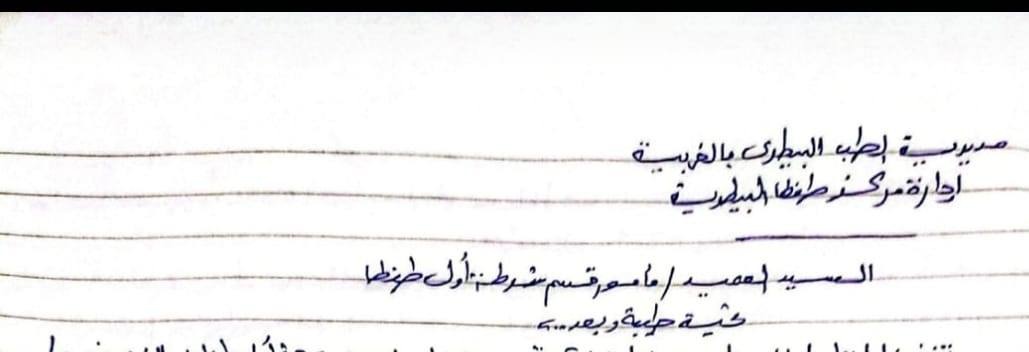 مديرية الطب البيطرى بالغربية
إدارة مركز طنطا البيطرية
السيد العميد / مأمور قسم شرطة أول طنطا
تحية طيبة وبعد،،،